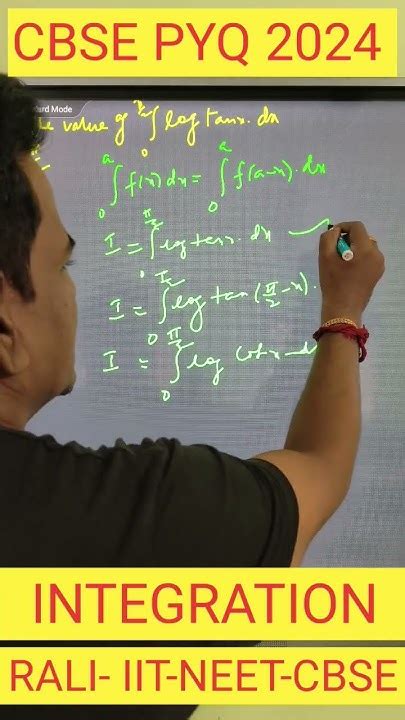 CBSE PYQ 2024
ard Mode
value of ∫₀^(π/2) log tanx. dx
∫₀^a f(x) dx = ∫₀^a f(a-x). dx
I = ∫₀^(π/2) log tanx. dx
I = ∫₀^(π/2) log tan (π/2 - x).
I = ∫₀^(π/2) log cotx
INTEGRATION
RALI- IIT-NEET-CBSE